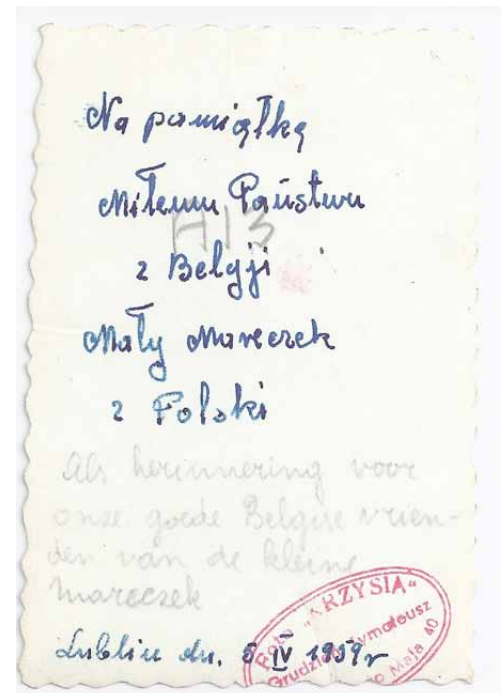 Na pamiątkę
Miłemu Państwu
H13
z Belgji
Mały Mareczek
z Polski
Als herinnering voor
onze goede Belgise vrien-
den van de kleine
Mareczek
Lublin dn. 5 IV 1959 r
Foto „KRZYSIA"
Grudzień Tymoteusz
Maja 40